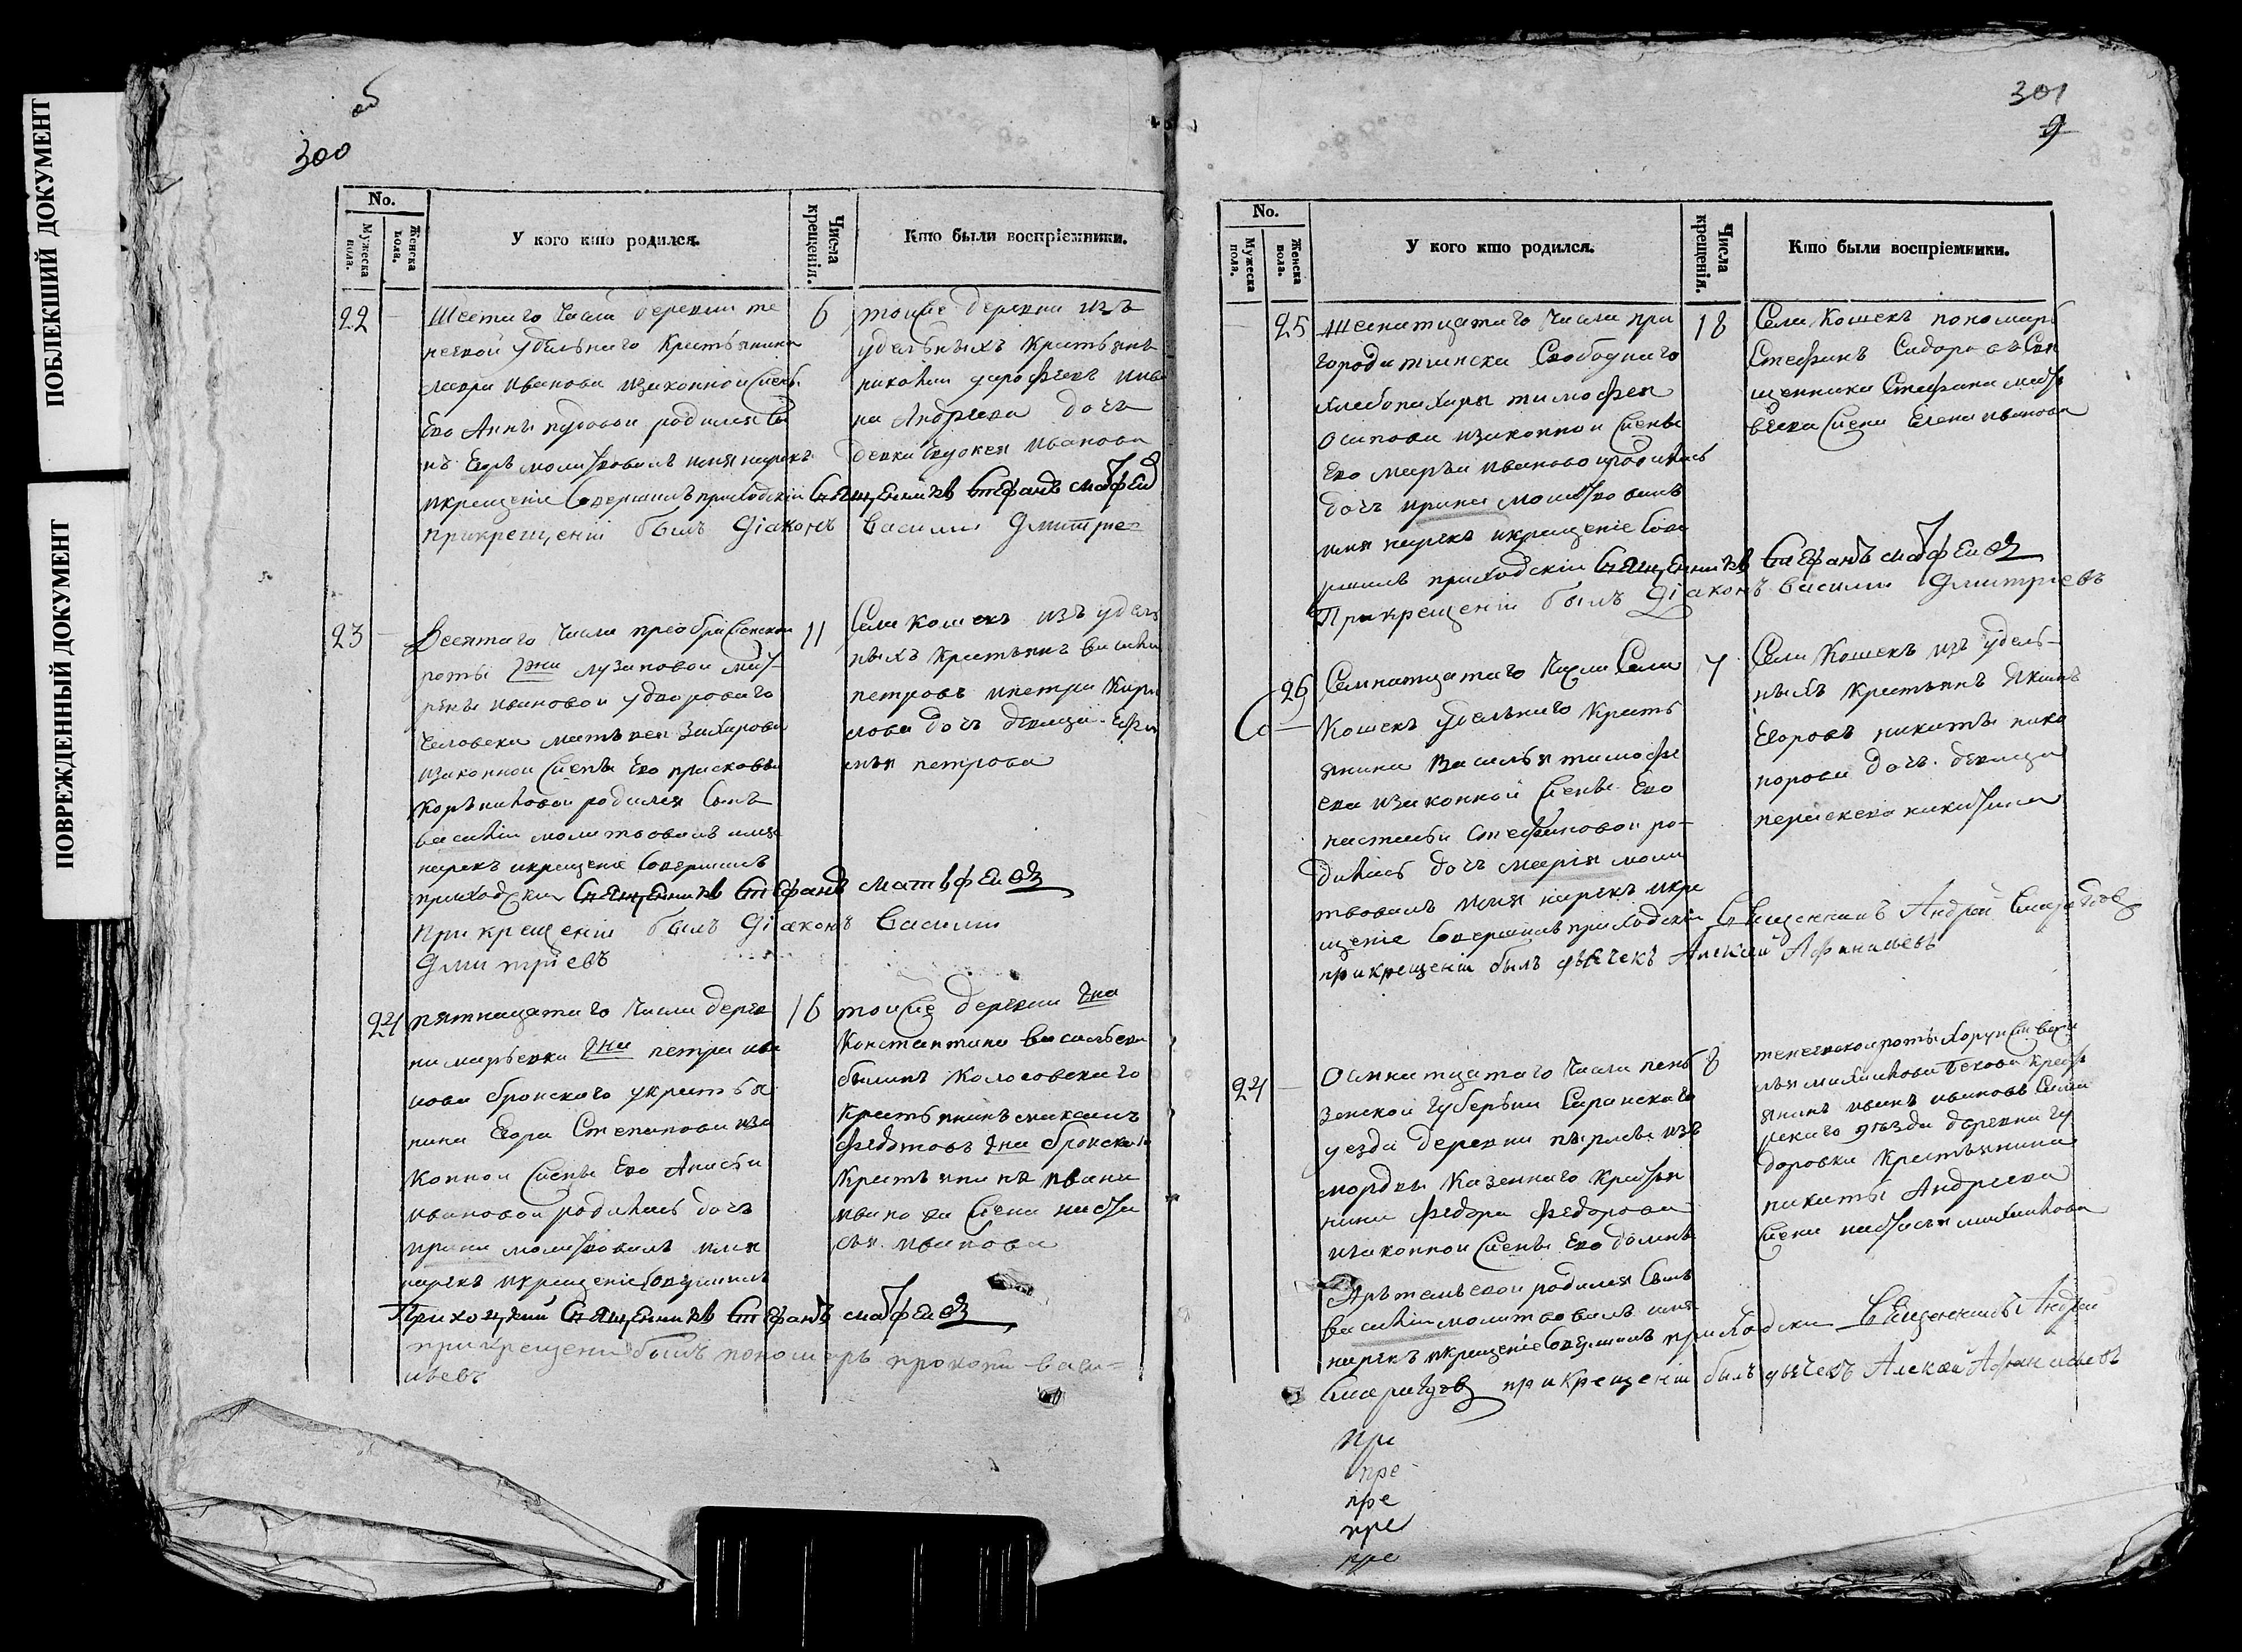 ПОБЛЕКШИЙ ДОКУМЕНТ
ПОВРЕЖДЕННЫЙ ДОКУМЕНТ
об
300
No.
Мужеска пола.
Женска пола.
У кого кто родился.
Числа крещенія.
Кто были воспріемники.
22
Шестаго числа деревни те
невой удѣльнаго крестьянина
лавра иванова изаконной жены
Его Анны родился сы
нъ Егоръ молитвовалъ имя нарекъ
икрещеніе совершилъ приходскій священникъ стефанъ матфеи
прикрещеніи былъ діаконъ василии дмитрие
6
тойже деревни изъ
удельныхъ крестьянъ
ива
на Андреева дочь
девка иванова
23
Десятаго числа преображенской
роты гжи лузиновой мат
рены ивановой удвороваго
человека матвея захарова
изаконной жены Его прасковьи
родился сынъ
василіи молитвовалъ имя
нарекъ икрещеніе совершилъ
приходскій священникъ стефанъ матвфеиов
при крещеніи былъ діаконъ василии
дмитріевъ
11
Села кошекъ изъ удель
ныхъ крестьянъ василіи
петровъ ипетра кири
лова дочь девица
петрова
24
пятнацатаго числа дерев
ни марьевки гна петра ива
нова бронскаго укрестья
нина Егора Степанова иза
конной жены Его Анисьи
ивановой родилась дочь
ирина молитвовалъ имя
нарекъ икрещеніе совершилъ
Приходцкій священникъ стефанъ матфеиов
прикрещени былъ пономарь прокопи васи=
льевъ
16
тойже деревни гна
Константина васильева
былинъ колосовскаго
крестьянинъ максимъ
федотовъ гна бронскаго
крестьянина ивана
иванова жена наста
сья иванова
301
9
No.
Мужеска пола.
Женска пола.
У кого кто родился.
Числа крещенія.
Кто были воспріемники.
25
шеснатцатаго числа при
города тиинска свободнаго
хлебопахаря тимофея
осипова изаконной жены
Его марьи ивановой родилась
дочь ирина молитвовалъ
имя нарекъ икрещеніе сове
ршилъ приходскіи священникъ стефанъ матфеиов
Прикрещеніи былъ діаконъ василии дмитріевъ
18
Села Кошекъ пономарь
Стефанъ Сидоровъ свя
щенника Стефана матф
веева жена Елена иванова
26
Семнатцатаго числа Села
Кошекъ удельнаго кресть
янина василья тимофе
ева изаконной жены Его
настасьи стефановой ро-
дилась дочь марія моли
твовалъ имя нарекъ икре
щеніе совершилъ приходскіи священникъ Андрей Смарагдовъ
прикрещеніи былъ дьячекъ Алексѣй Афанасьевъ
Села Кошекъ изъ удель-
ныхъ крестьянъ
Егоровъ никиты ника
норова дочь девица
параскева никитина
24
Осмнатцатаго числа пень
зенской губерніи Саранскаго
уезда деревни изъ
мордвы казеннаго крестья
нина федора федорова
изаконной жены Его домны
Артемьевой родился сынъ
василіи молитвовалъ имя
нарекъ икрещеніе совершилъ приходскіи священникъ Андрей
Смарагдовъ прикрещеніи былъ дьячекъ Алексѣй Афанасьевъ
8
тенеевской роты
крестья
янинъ иванъ ивановъ сама
рскаго уѣзда деревни гу
доровки крестьянина
никиты Андреева
жена настасья михайлова
при
пре
пре
пре
пре